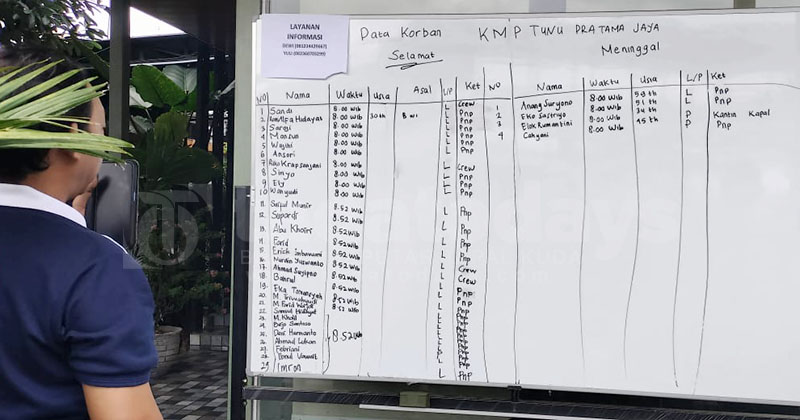 LAYANAN
INFORMASI
Data Korban KMP TUNU PRATAMA JAYA
Selamat Meninggal
NO Nama Waktu Usia Asal L/P Ket NO Nama Waktu Usia L/P Ket
1 Sandi 8.00 Wib L Crew 1 Anang Suryono 8.00 Wib 59 th L Pnp
2 Hidayah 8.00 Wib 30 th Bwi L Pnp 2 Eko Sastriyo 8.00 Wib 51 th L Pnp
3 Saroji 8.00 Wib L Pnp 3 Elok Rumantini 8.00 Wib 34 th P Kantin Kapal
4 Mansun 8.00 Wib L Pnp 4 Cahyani 8.00 Wib 45 th P Pnp
5 Wajihi 8.00 Wib L Pnp
6 Ansori 8.00 Wib L Pnp
7 8.00 Wib L Crew
8 Sinyo 8.00 Wib L Pnp
9 Ely 8.00 Wib L Pnp
10 Wahyudi 8.00 Wib L Pnp
11. Saiful Munir 8.52 Wib
12. Supardi 8.52 Wib L Pnp
13. Abu Khoiri 8.52 Wib L Pnp
14. Farid 8.52 Wib L Pnp
15. Erick 8.52 Wib L Pnp
16. 8.52 Wib L Pnp
17. Ahmad 8.52 Wib L Crew
18. Bahrul 8.52 Wib L Crew
19. Eka 8.52 Wib L Pnp
20. M. 8.52 Wib L Pnp
21. M. Farid 8.52 Wib L Pnp
22. Samsul Hidayat 8.52 Wib L Pnp
23. M. Kholil L Pnp
24. Santoso L Pnp
25. Deni Hermanto 8.52 Wib L Pnp
26. Ahmad Lukman L Pnp
27. Febriani Pnp
28. L Pnp
29 Imron L Pnp